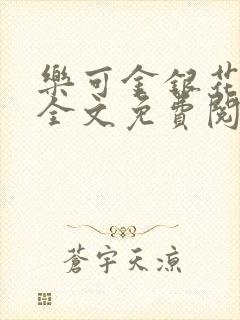 樂可金銀花
全文免費閱
蒼宇天涼